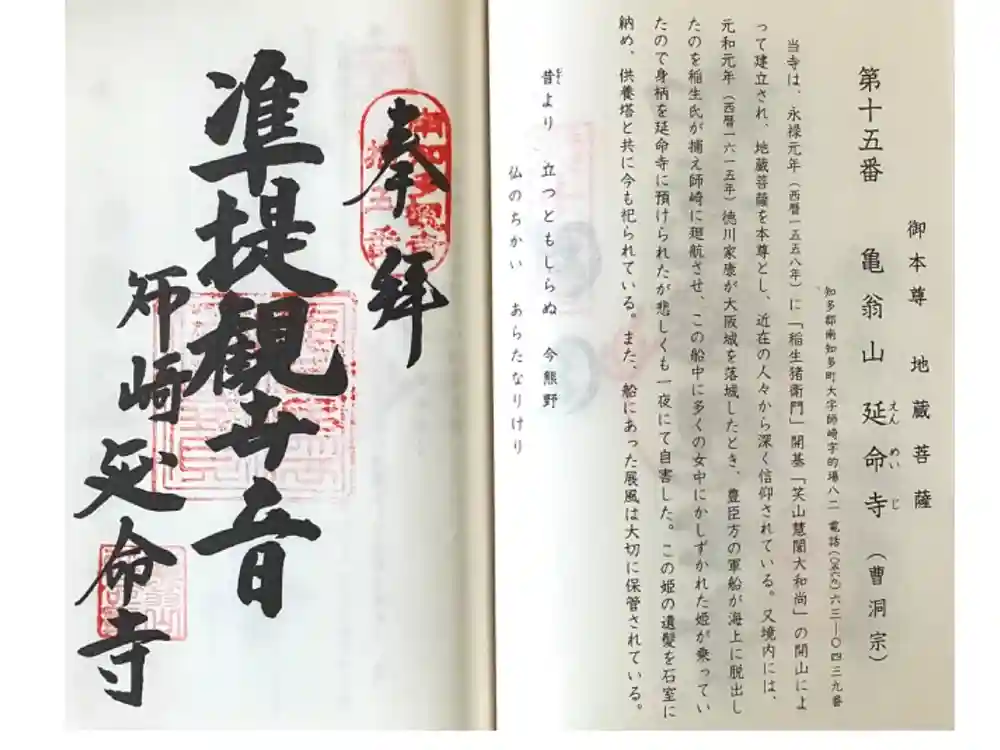 御本尊 地蔵菩薩
第十五番 亀翁山 延命寺 (曹洞宗)
えん めい じ
知多郡南知多町大字師崎字的場八二 電話(〇五六九)六三―〇四三九番
当寺は、永禄元年(西暦一五五八年)に「稲生猪衛門」開基「笑山慧誾大和尚」の開山によ
って建立され、地蔵菩薩を本尊とし、近在の人々から深く信仰されている。又境内には、
元和元年(西暦一六一五年)徳川家康が大阪城を落城したとき、豊臣方の軍船が海上に脱出し
たのを稲生氏が捕え師崎に廻航させ、この船中に多くの女中にかしずかれた姫が乗ってい
たので身柄を延命寺に預けられたが悲しくも一夜にて自害した。この姫の遺髪を石室に
納め、供養塔と共に今も祀られている。また、船にあった屏風は大切に保管されている。
昔より 立つともしらぬ 今熊野
仏のちかい あらたなりけり
奉拜
准提観世音
師崎延命寺